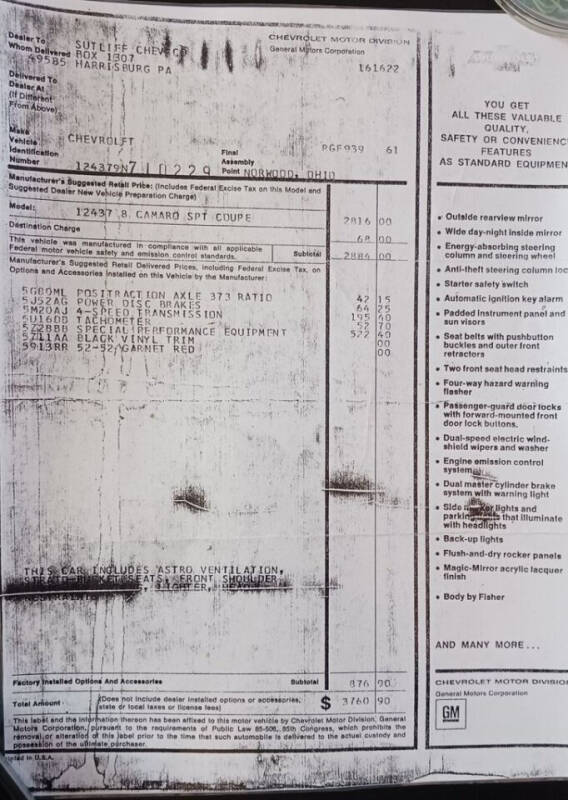 Dealer To
Whom Delivered
SUTLIFF CHEV CO
BOX 1307
49585 HARRISBURG PA
CHEVROLET MOTOR DIVISION
General Motors Corporation
161622
Delivered To
Dealer At
(If Different
From Above)
Make
Vehicle
CHEVROLET
Identification
Number
124379N710229
Final
Assembly
Point NORWOOD, OHIO
RGF939 61
Manufacturer's Suggested Retail Price: (Includes Federal Excise Tax on this Model and
Suggested Dealer New Vehicle Preparation Charge)
Model:
12437 8 CAMARO SPT COUPE 2816 00
Destination Charge 68 00
This vehicle was manufactured in compliance with all applicable
Federal motor vehicle safety and emission control standards. Subtotal 2884 00
Manufacturer's Suggested Retail Delivered Prices, including Federal Excise Tax, on
Options and Accessories Installed on this Vehicle by the Manufacturer:
POSITRACTION AXLE 373 RATIO 42 15
5J52AG POWER DISC BRAKES 64 25
5M20AJ 4-SPEED TRANSMISSION 195 40
TACHOMETER 52 70
SPECIAL PERFORMANCE EQUIPMENT 522 40
BLACK VINYL TRIM 00
52-52 GARNET RED 00
THIS CAR INCLUDES ASTRO VENTILATION,
STRATO-BUCKET SEATS, FRONT SHOULDER
LIGHTER,
Factory Installed Options And Accessories Subtotal 876 90
Total Amount (Does not include dealer installed options or accessories,
state or local taxes or license fees) $ 3760 90
This label and the information thereon has been affixed to this motor vehicle by Chevrolet Motor Division, General
Motors Corporation, pursuant to the requirements of Public Law 85-506, 85th Congress, which prohibits the
removal or alteration of this label prior to the time that such automobile is delivered to the actual custody and
possession of the ultimate purchaser.
in U.S.A.
YOU GET
ALL THESE VALUABLE
QUALITY,
SAFETY OR CONVENIENC
FEATURES
AS STANDARD EQUIPMEN
• Outside rearview mirror
• Wide day-night inside mirror
• Energy-absorbing steering
column and steering wheel
• Anti-theft steering column loc
• Starter safety switch
• Automatic ignition key alarm
• Padded instrument panel and
sun visors
• Seat belts with pushbutton
buckles and outer front
retractors
• Two front seat head restraints
• Four-way hazard warning
flasher
• Passenger-guard door locks
with forward-mounted front
door lock buttons.
• Dual-speed electric wind-
shield wipers and washer
• Engine emission control
system
• Dual master cylinder brake
system with warning light
• Side marker lights and
parking lights that illuminate
with headlights
• Back-up lights
• Flush-and-dry rocker panels
• Magic-Mirror acrylic lacquer
finish
• Body by Fisher
AND MANY MORE...
CHEVROLET MOTOR DIVISION
General Motors Corporation
GM